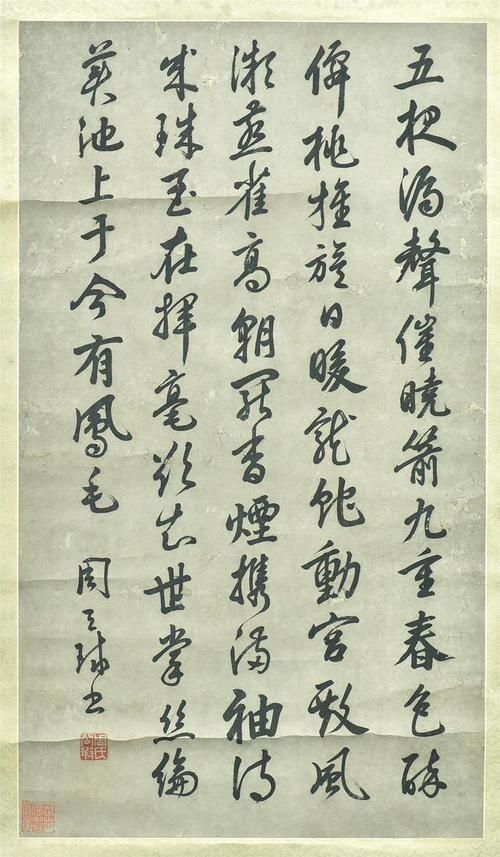 五夜漏聲催曉箭九重春色醉
僊桃旌旂日暖龍蛇動宮殿風
微燕雀高朝罷香煙攜滿袖詩
成珠玉在揮毫欲知世掌絲綸
美池上于今有鳳毛 周天球書
周氏公瑕